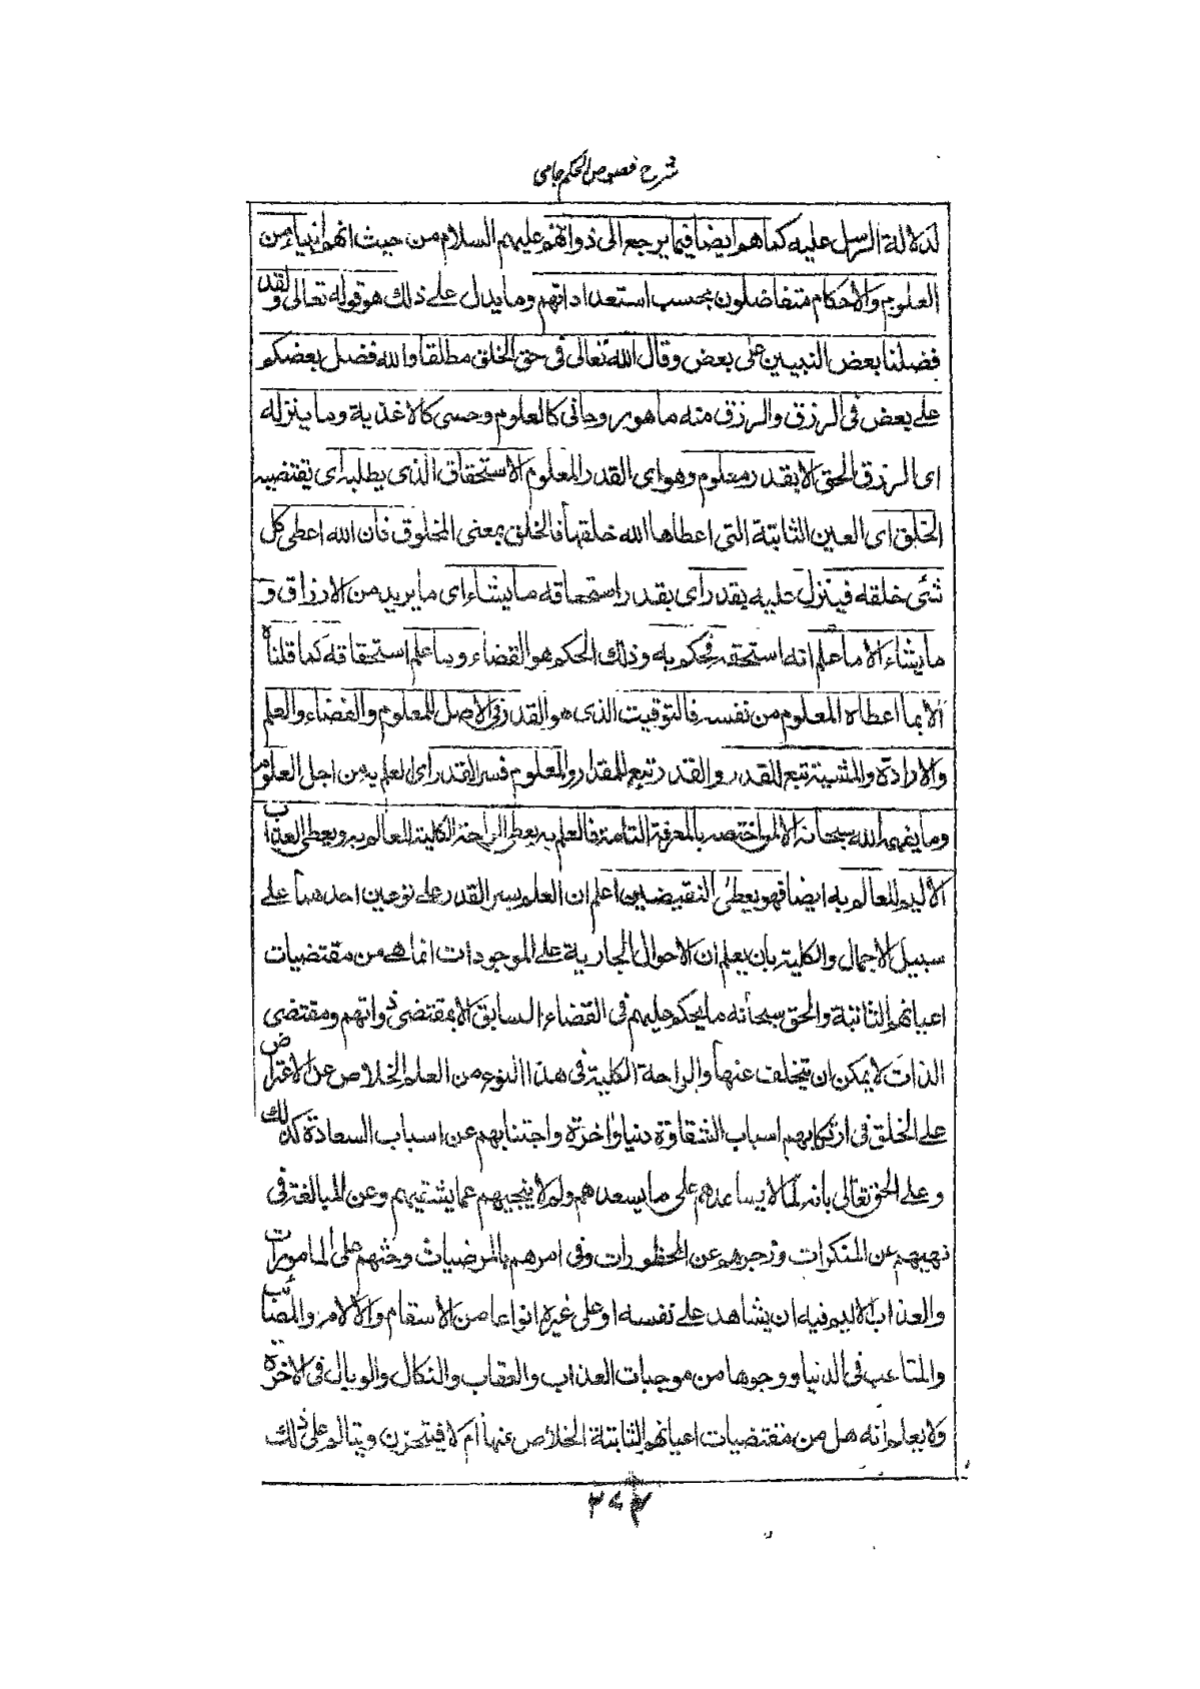 شرح فصوص الحكم جامى
لدلالة الرسل عليه كما هو ايضا فيما يرجع الى ذواتهم عليهم السلام من حيث انهم انبياء من
العلوم والاحكام متفاضلون بحسب استعداداتهم وما يدل على ذلك هو قوله تعالى ولقد
فضلنا بعض النبيين على بعض وقال الله تعالى فى حق الخلق مطلقا والله فضل بعضكم
على بعض فى الرزق والرزق منه ما هو روحانى كالعلوم وحسى كالاغذية وما ينزله
اى الرزق الحق الا بقدر معلوم وهو اى القدر المعلوم الاستحقاق الذى يطلبه اى يقتضيه
الخلق اى العين الثابتة التى اعطاها الله خلقها فالخلق بمعنى المخلوق فان الله اعطى كل
شئى خلقه فينزل عليه بقدر اى بقدر استحقاقه ما يشاء اى ما يريد من الارزاق و
ما يشاء الا ما علم انه استحقه فحكم به وذلك الحكم هو القضاء وما علم استحقاقه كما قلناه
الا بما اعطاه المعلوم من نفسه فالتوقيت الذى هو القدر فى الاصل للمعلوم والقضاء والعلم
والارادة والمشيئة تبع للقدر والقدر تبع للمقدار والمعلوم فسر القدر اى العلم به من اجل العلوم
وما يفهمه الله سبحانه الا لمن اختصه بالمعرفة التامة فالعلم به يعطى الراحة الكلية للعالم به ويعطى العذاب
الاليم للعالم به ايضا فهو يعطى النقيضين اعلم ان العلم بسر القدر على نوعين احدهما على
سبيل الاجمال والكلية بان يعلم ان الاحوال الجارية على الموجودات انما هى من مقتضيات
اعيانهم الثابتة والحق سبحانه ما يحكم عليهم فى القضاء السابق الا بمقتضى ذواتهم ومقتضى
الذات لا يمكن ان يتخلف عنها والراحة الكلية فى هذا النوع من العلم الخلاص عن الاعتراض
على الخلق فى ارتكابهم اسباب الشقاوة دنيا واخرة واجتنابهم عن اسباب السعادة كذلك
وعلى الحق تعالى بانه لما لا يساعدهم على ما يسعدهم ولم لا ينجيهم عما يشقيهم وعن المبالغة فى
نهيهم عن المنكرات وزجرهم عن المحظورات وفى امرهم بالمرضيات وحثهم على المامورات
والعذاب الاليم فيه ان يشاهد على نفسه او على غيره انواعا من الاسقام والالام والمصائب
والمتاعب فى الدنيا ووجوها من موجبات العذاب والعقاب والنكال والوبال فى الاخرة
ولا يعلم انه هل من مقتضيات اعيانهم الثابتة الخلاص عنها ام لا فيتحزن ويتالم على ذلك